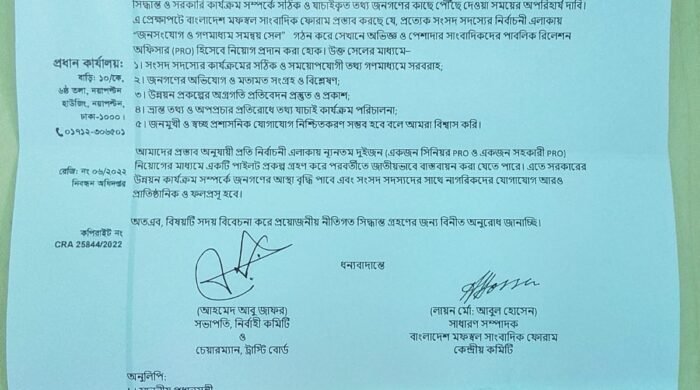 সিদ্ধান্ত ও সরকারি কার্যক্রম সম্পর্কে সঠিক ও যাচাইকৃত তথ্য জনগণের কাছে পৌঁছে দেওয়া সময়ের অপরিহার্য দাবি।
এ প্রেক্ষাপটে বাংলাদেশ মফস্বল সাংবাদিক ফোরাম প্রস্তাব করছে যে, প্রত্যেক সংসদ সদস্যের নির্বাচনী এলাকায়
“জনসংযোগ ও গণমাধ্যম সমন্বয় সেল” গঠন করে সেখানে অভিজ্ঞ ও পেশাদার সাংবাদিকদের পাবলিক রিলেশন
অফিসার (PRO) হিসেবে নিয়োগ প্রদান করা হোক। উক্ত সেলের মাধ্যমে–
১। সংসদ সদস্যের কার্যক্রমের সঠিক ও সময়োপযোগী তথ্য গণমাধ্যমে সরবরাহ;
২। জনগণের অভিযোগ ও মতামত সংগ্রহ ও বিশ্লেষণ;
৩। উন্নয়ন প্রকল্পের অগ্রগতি প্রতিবেদন প্রস্তুত ও প্রকাশ;
৪। ভ্রান্ত তথ্য ও অপপ্রচার প্রতিরোধে তথ্য যাচাই কার্যক্রম পরিচালনা;
৫। জনমুখী ও স্বচ্ছ প্রশাসনিক যোগাযোগ নিশ্চিতকরণ সম্ভব হবে বলে আমরা বিশ্বাস করি।
প্রধান কার্যালয়:
বাড়ি: ১০/কে,
৬ষ্ঠ তলা, নয়াপল্টন
হাউজিং, নয়াপল্টন,
ঢাকা-১০০০।
০১৭১২-৩০৬৫০১
আমাদের প্রস্তাব অনুযায়ী প্রতি নির্বাচনী এলাকায় ন্যূনতম দুইজন (একজন সিনিয়র PRO ও একজন সহকারী PRO)
নিয়োগের মাধ্যমে একটি পাইলট প্রকল্প গ্রহণ করে পরবর্তীতে জাতীয়ভাবে বাস্তবায়ন করা যেতে পারে। এতে সরকারের
উন্নয়ন কার্যক্রম সম্পর্কে জনগণের আস্থা বৃদ্ধি পাবে এবং সংসদ সদস্যদের সাথে নাগরিকদের যোগাযোগ আরও
প্রাতিষ্ঠানিক ও ফলপ্রসূ হবে।
রেজি: নং ০৬/২০২২
নিবন্ধন অধিদপ্তর
অতএব, বিষয়টি সদয় বিবেচনা করে প্রয়োজনীয় নীতিগত সিদ্ধান্ত গ্রহণের জন্য বিনীত অনুরোধ জানাচ্ছি।
কপিরাইট নং
CRA 25844/2022
ধন্যবাদান্তে
(আহমেদ আবু জাফর)
সভাপতি, নির্বাহী কমিটি
ও
চেয়ারম্যান, ট্রাস্টি বোর্ড
(লায়ন মো: আবুল হোসেন)
সাধারণ সম্পাদক
বাংলাদেশ মফস্বল সাংবাদিক ফোরাম
কেন্দ্রীয় কমিটি
অনুলিপি: